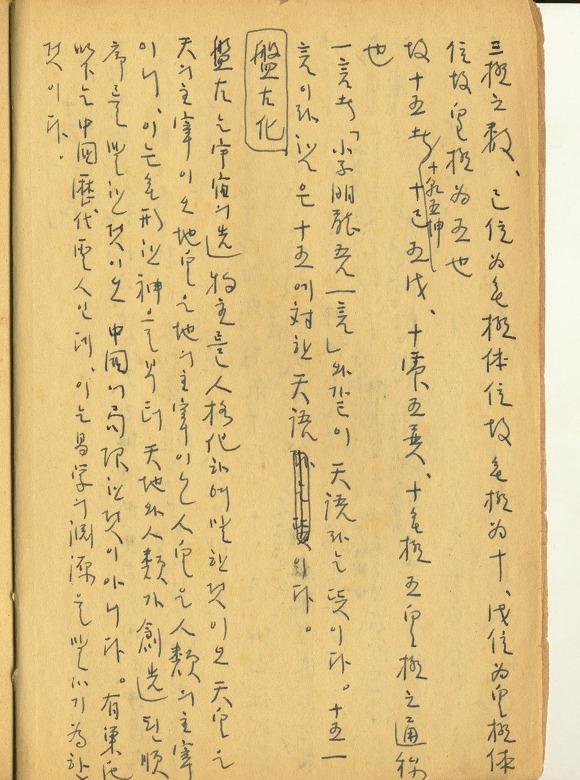 三極之數、己位为無極体位故無極为十、戊位为皇極体
位故皇極为五也
故十五者十己五戊、十乾五坤、十無極五皇極之通稱
也
一言者「小子明聽吾一言」와같이 天語라는 뜻이다。十五一
言이라 함은 十五에 対한 天語이다。
盤古化
盤古는 宇宙의 造物主를 人格化하여 말한것이오 天皇은
天의 主宰이오 地皇은 地의 主宰이오 人皇은 人類의 主宰
이니、이는 無形한 神으로부터 天地와 人類가 創造된 順
序를 말한것이오 中國에 局限한것이 아니다。有巢氏
以下는 中國歷代聖人인데、이는 易学의 淵源을 말하기 為한
것이다。